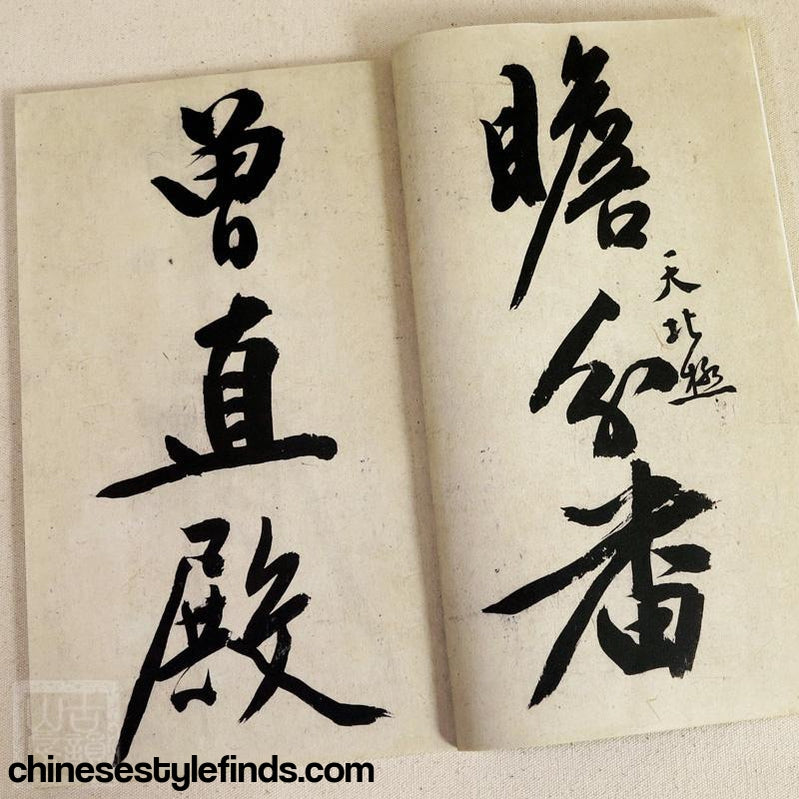 瞻
天北極
分番
曾直殿
chinesestylefinds.com